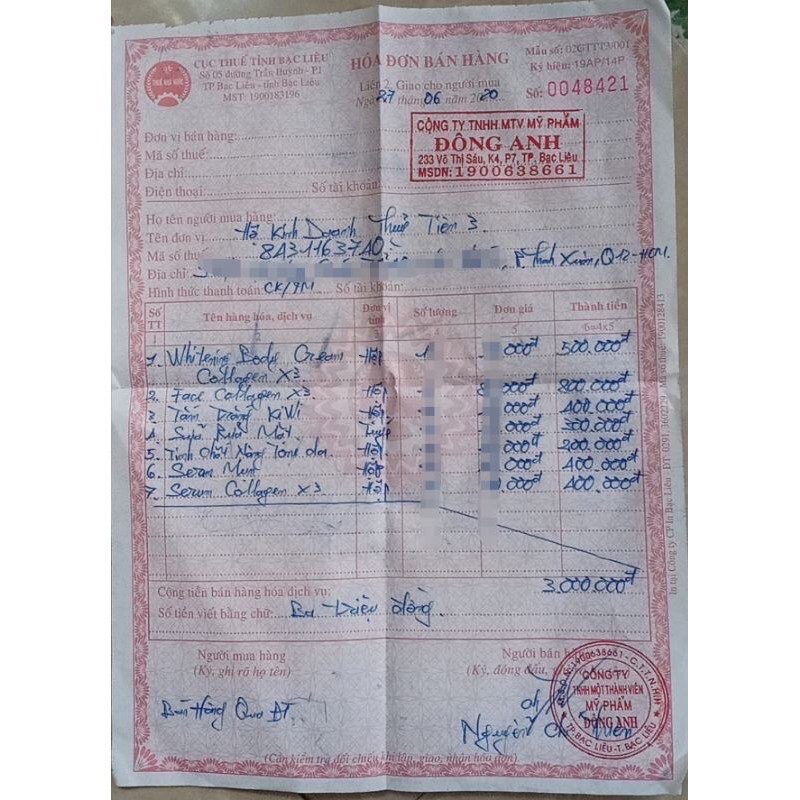 CỤC THUẾ TỈNH BẠC LIÊU
Số 05 đường Trần Huỳnh - P.1
TP Bạc Liêu - tỉnh Bạc Liêu
MST: 1900183196
THUẾ NHÀ NƯỚC
HÓA ĐƠN BÁN HÀNG
Liên 2: Giao cho người mua
Ngày 27 tháng 06 năm 2020
Mẫu số: 02GTTT3/001
Ký hiệu: 19AP/14P
Số: 0048421
Đơn vị bán hàng:
Mã số thuế:
Địa chỉ:
Điện thoại: Số tài khoản:
CÔNG TY TNHH MTV MỸ PHẨM
ĐÔNG ANH
233 Võ Thị Sáu, K4, P7, TP. Bạc Liêu
MSDN: 1900638661
Họ tên người mua hàng:
Tên đơn vị: Hộ Kinh Doanh Thuỷ Tiên 3
Mã số thuế: 8431163740
Địa chỉ: Thạnh Xuân, Q12-HCM.
Hình thức thanh toán: CK/TM Số tài khoản:
Số TT Tên hàng hóa, dịch vụ Đơn vị tính Số lượng Đơn giá Thành tiền
1 4 5 6=4x5
1. Whitening Body Cream Collagen X3 Hộp 1 000đ 500.000đ
2. Face Collagen X3 Hộp 000đ 800.000đ
3. Tắm Trắng KiWi Hộp 000đ 400.000đ
4. Sữa Rửa Mặt Tuýp 000đ 300.000đ
5. Tinh Chất Nâng Tông da Hộp 000đ 200.000đ
6. Serum Mụn Hộp 000đ 400.000đ
7. Serum Collagen X3 Hộp 000đ 400.000đ
Cộng tiền bán hàng hóa dịch vụ: 3.000.000đ
Số tiền viết bằng chữ: Ba Triệu đồng.
Người mua hàng
(Ký, ghi rõ họ tên)
Bán Hàng Qua ĐT
Người bán hàng
(Ký, đóng dấu,
Nguyễn
M.S.D.N:1900638661-C.T.T.N.H.H
CÔNG TY
TNHH MỘT THÀNH VIÊN
MỸ PHẨM
ĐÔNG ANH
TP. BẠC LIÊU - T. BẠC LIÊU
(Cần kiểm tra đối chiếu khi lập, giao, nhận hóa đơn)
In tại Công ty CP In Bạc Liêu - ĐT: 0291.3602229 - Mã số thuế: 1900128413